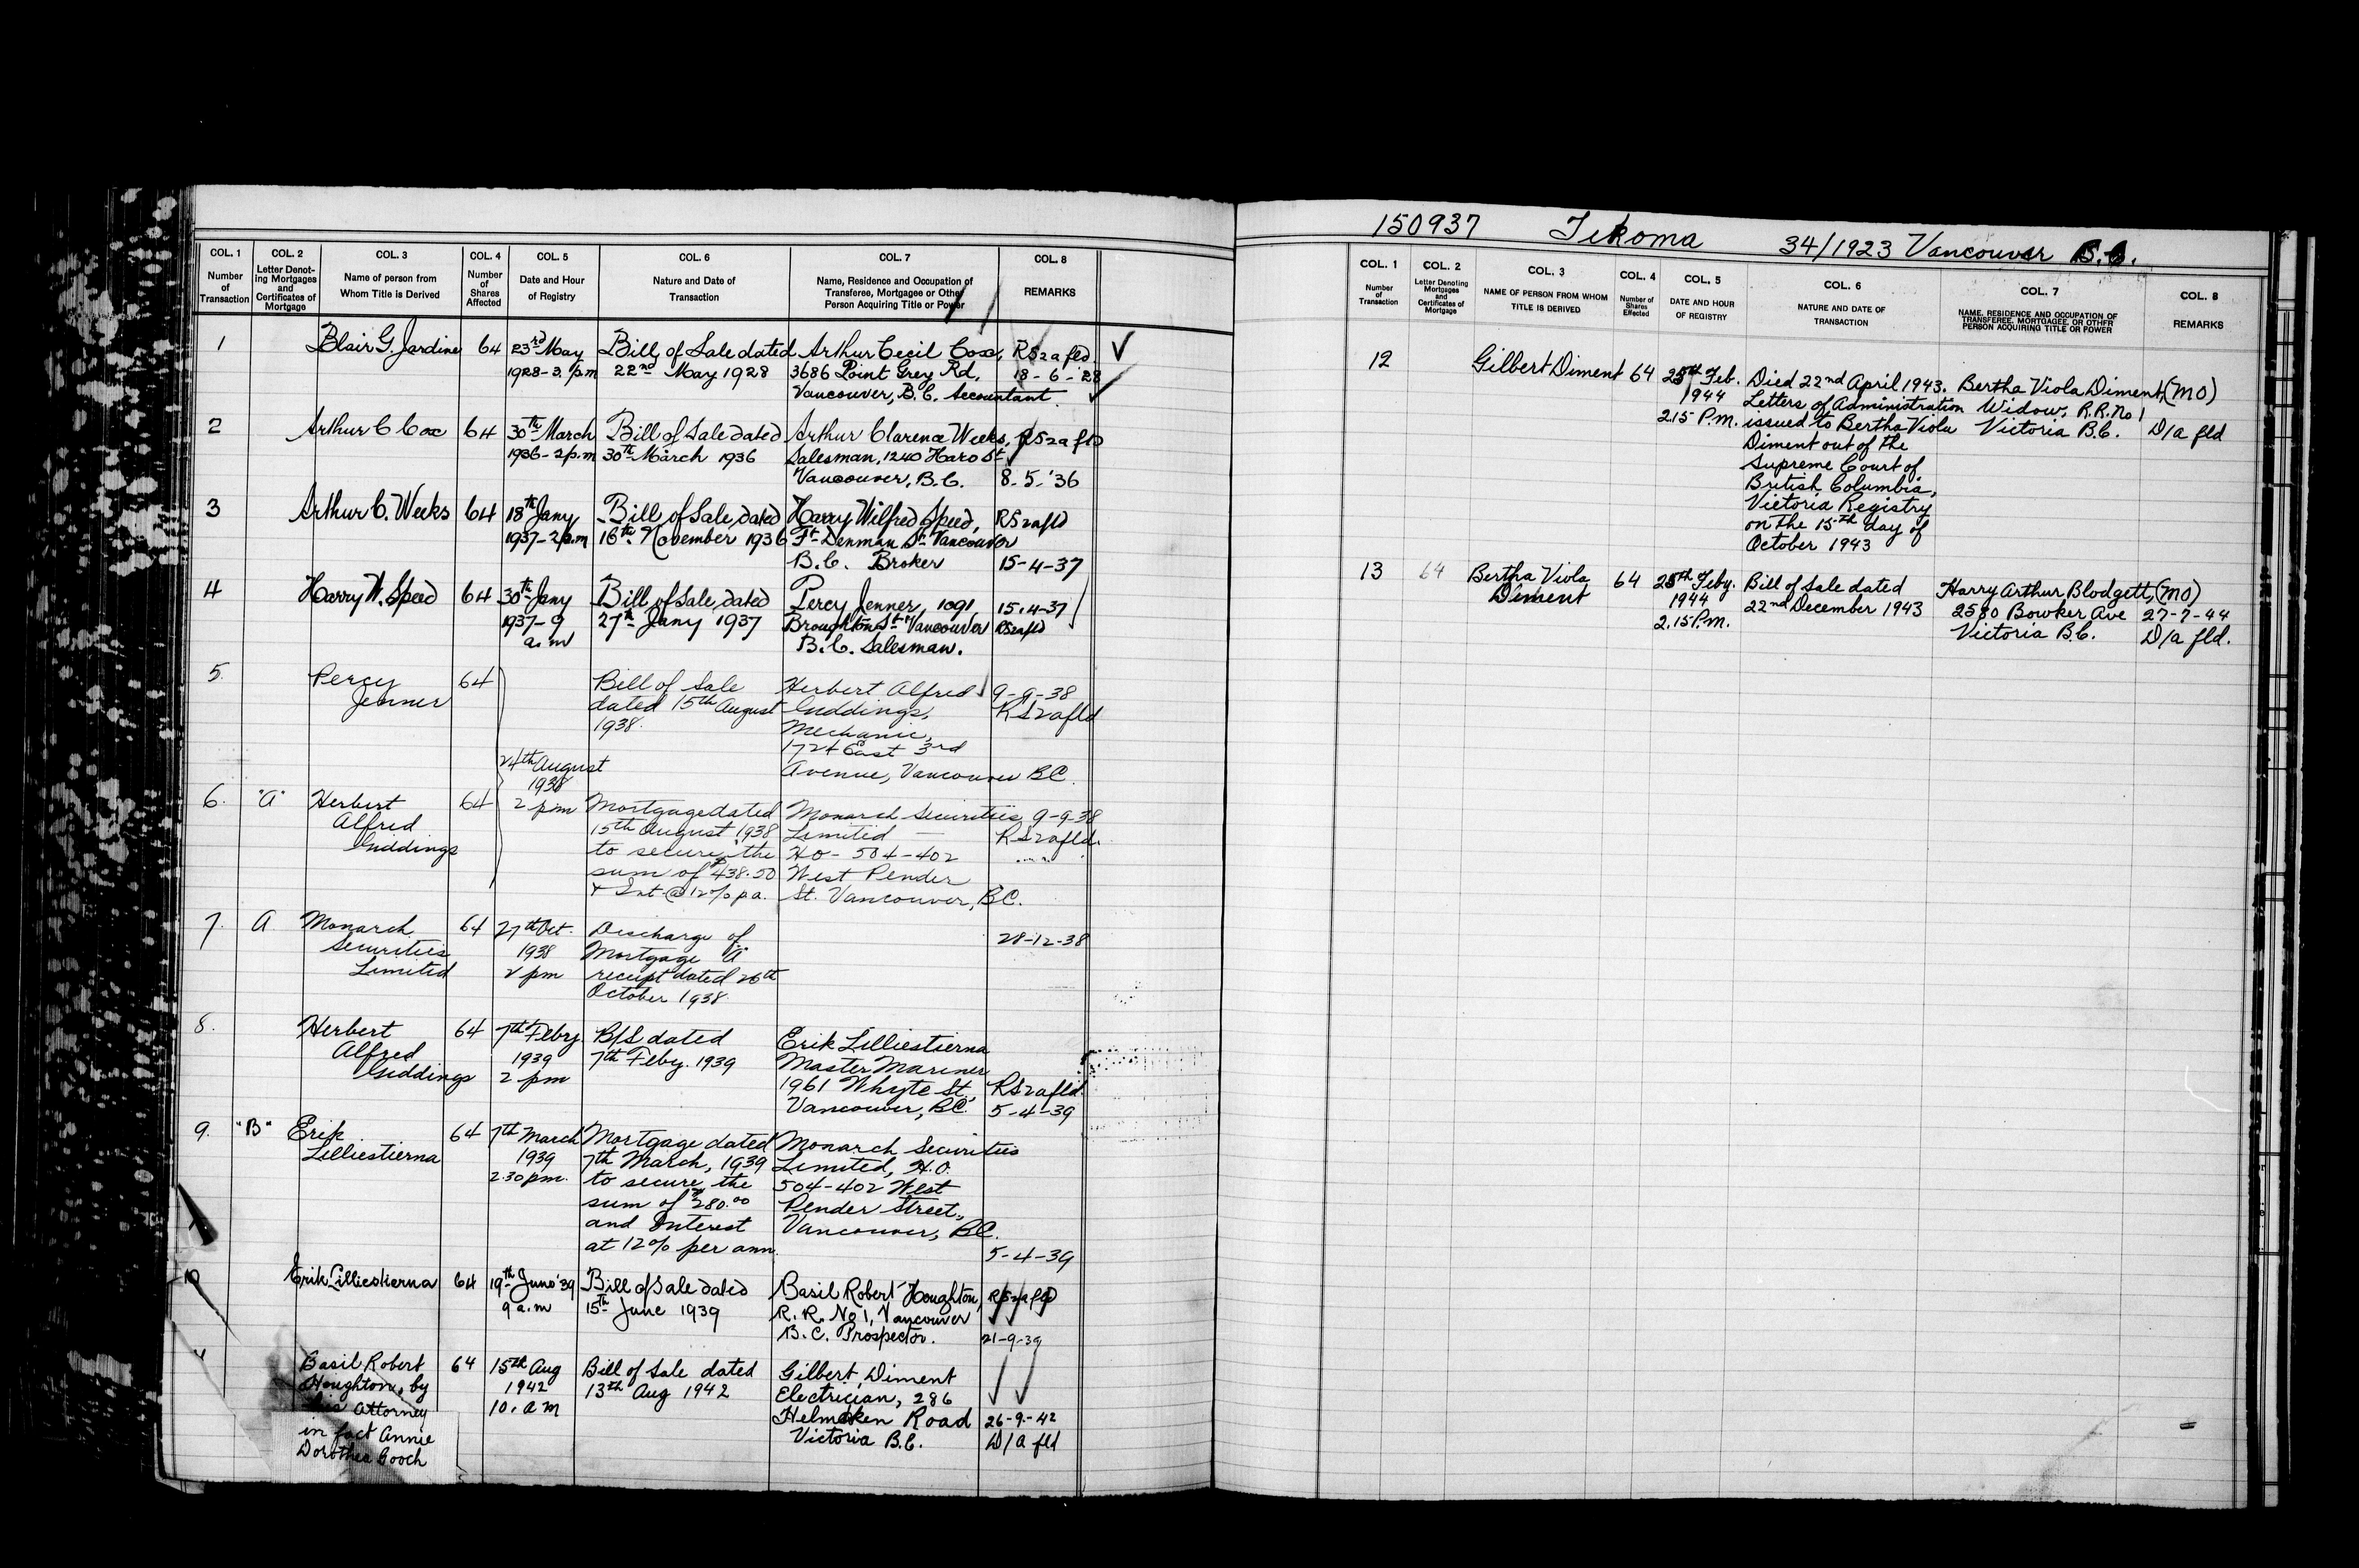 COL. 1
Number
of
Transaction
COL. 2
Letter Denot-
ing Mortgages
and
Certificates of
Mortgage
COL. 3
Name of person from
Whom Title is Derived
COL. 4
Number
of
Shares
Affected
COL. 5
Date and Hour
of Registry
COL. 6
Nature and Date of
Transaction
COL. 7
Name, Residence and Occupation of
Transferee, Mortgagee or Other
Person Acquiring Title or Power
COL. 8
REMARKS
1
Blair G. Jardine
64
23rd May
1928-3. p.m
Bill of Sale dated
22nd May 1928
Arthur Cecil Cox,
3686 Point Grey Rd,
Vancouver, B.C. Accountant
RS2a fld.
18-6-'28
2
Arthur C Cox
64
30th March
1936-2 p.m
Bill of Sale dated
30th March 1936
Arthur Clarence Weeks,
Salesman, 1240 Haro St
Vancouver, B.C.
RS2a fld
8-5-'36
3
Arthur C. Weeks
64
18th Jany
1937-2 p.m
Bill of Sale dated
16th November 1936
Harry Wilfred Speed,
Ft Denman St Vancouver
B.C. Broker
RS2afld
15-4-37
4
Harry W. Speed
64
30th Jany
1937-9
a.m
Bill of Sale dated
27th Jany 1937
Percy Jenner, 1091,
Broughton St Vancouver
B.C. Salesman.
15-4-37
RS2afld
5.
Percy
Jenner
64
Bill of Sale
dated 15th August
1938.
Herbert Alfred
Giddings,
Mechanic,
1724 East 3rd
Avenue, Vancouver BC.
9-9-38
RS2afld
24th August
1938
2 pm
6.
"A"
Herbert
Alfred
Giddings
64
Mortgage dated
15th August 1938
to secure the
sum of $438.50
+ Int @ 12% pa.
Monarch Securities
Limited —
HO- 504-402
West Pender
St. Vancouver, BC.
9-9-38
RS2afld.
7.
A
Monarch
Securities
Limited
64
27th Oct.
1938
2 pm
Discharge of
Mortgage "A"
receipt dated 26th
October 1938.
28-12-38
8.
Herbert
Alfred
Giddings
64
7th Feby
1939
2 pm
B/S dated
7th Feby. 1939
Erik Lilliestierna
Master Mariner
1961 Whyte St,
Vancouver, BC.
RS2afld.
5-4-39
9.
"B"
Erik
Lilliestierna
64
7th March
1939
2.30 pm.
Mortgage dated
7th March, 1939
to secure the
sum of $280.00
and Interest
at 12% per ann.
Monarch Securities
Limited, H.O.
504-402 West
Pender Street,
Vancouver, BC.
5-4-39
10
Erik Lilliestierna
64
19th June '39
9 a.m
Bill of Sale dated
15th June 1939
Basil Robert Houghton,
R.R. No 1, Vancouver
B.C. Prospector.
RS2a fld
21-9-39
Basil Robert
Houghton, by
his Attorney
in fact Annie
Dorothea Gooch
64
15th Aug
1942
10. a m
Bill of Sale dated
13th Aug 1942
Gilbert Diment
Electrician, 286
Helmcken Road
Victoria B.C.
26-9-42
D/a fld
150937 Tekoma 34/1923 Vancouver B.C.
COL. 1
Number
of
Transaction
COL. 2
Letter Denoting
Mortgages
and
Certificates of
Mortgage
COL. 3
NAME OF PERSON FROM WHOM
TITLE IS DERIVED
COL. 4
Number of
Shares
Effected
COL. 5
DATE AND HOUR
OF REGISTRY
COL. 6
NATURE AND DATE OF
TRANSACTION
COL. 7
NAME, RESIDENCE AND OCCUPATION OF
TRANSFEREE, MORTGAGEE, OR OTHER
PERSON ACQUIRING TITLE OR POWER
COL. 8
REMARKS
12
Gilbert Diment
64
25th Feb.
1944
2.15 P.M.
Died 22nd April 1943.
Letters of Administration
issued to Bertha Viola
Diment out of the
Supreme Court of
British Columbia,
Victoria Registry
on the 15th day of
October 1943
Bertha Viola Diment, (MO)
Widow, R.R. No 1
Victoria B.C.
D/a fld
13
64
Bertha Viola
Diment
64
25th Feby.
1944
2.15 P.M.
Bill of Sale dated
22nd December 1943
Harry Arthur Blodgett, (MO)
2580 Bowker Ave
Victoria B.C.
27-7-44
D/a fld.